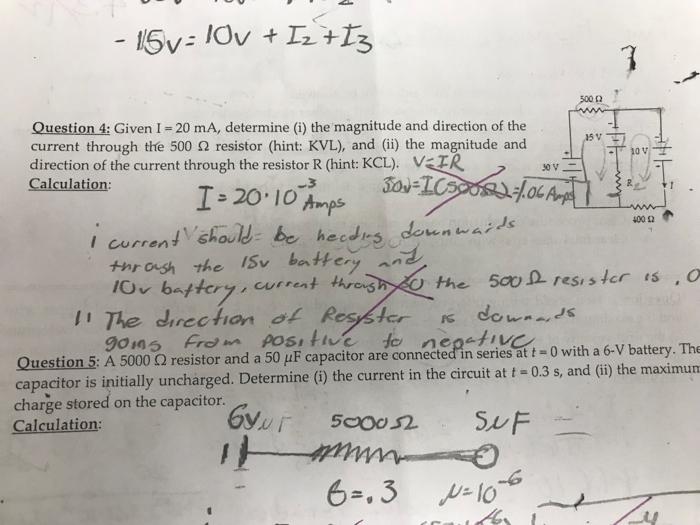 - 15v = 10v + I2 + I3
500 Ω
15 V
10 V
30 V
R
I
400 Ω
Question 4: Given I = 20 mA, determine (i) the magnitude and direction of the
current through the 500 Ω resistor (hint: KVL), and (ii) the magnitude and
direction of the current through the resistor R (hint: KCL). V=IR
Calculation:
I = 20·10⁻³ Amps
30v=I(500Ω)=1.06 Amps
i current should be heading downwards
through the 15v battery and
10v battery, current through the 500 Ω resistor is .0
ii The direction of Resistor is downwards
going from positive to negative
Question 5: A 5000 Ω resistor and a 50 μF capacitor are connected in series at t = 0 with a 6-V battery. The
capacitor is initially uncharged. Determine (i) the current in the circuit at t = 0.3 s, and (ii) the maximum
charge stored on the capacitor.
Calculation:
6V 5000Ω 5uF
t=.3 μ=10⁻⁶